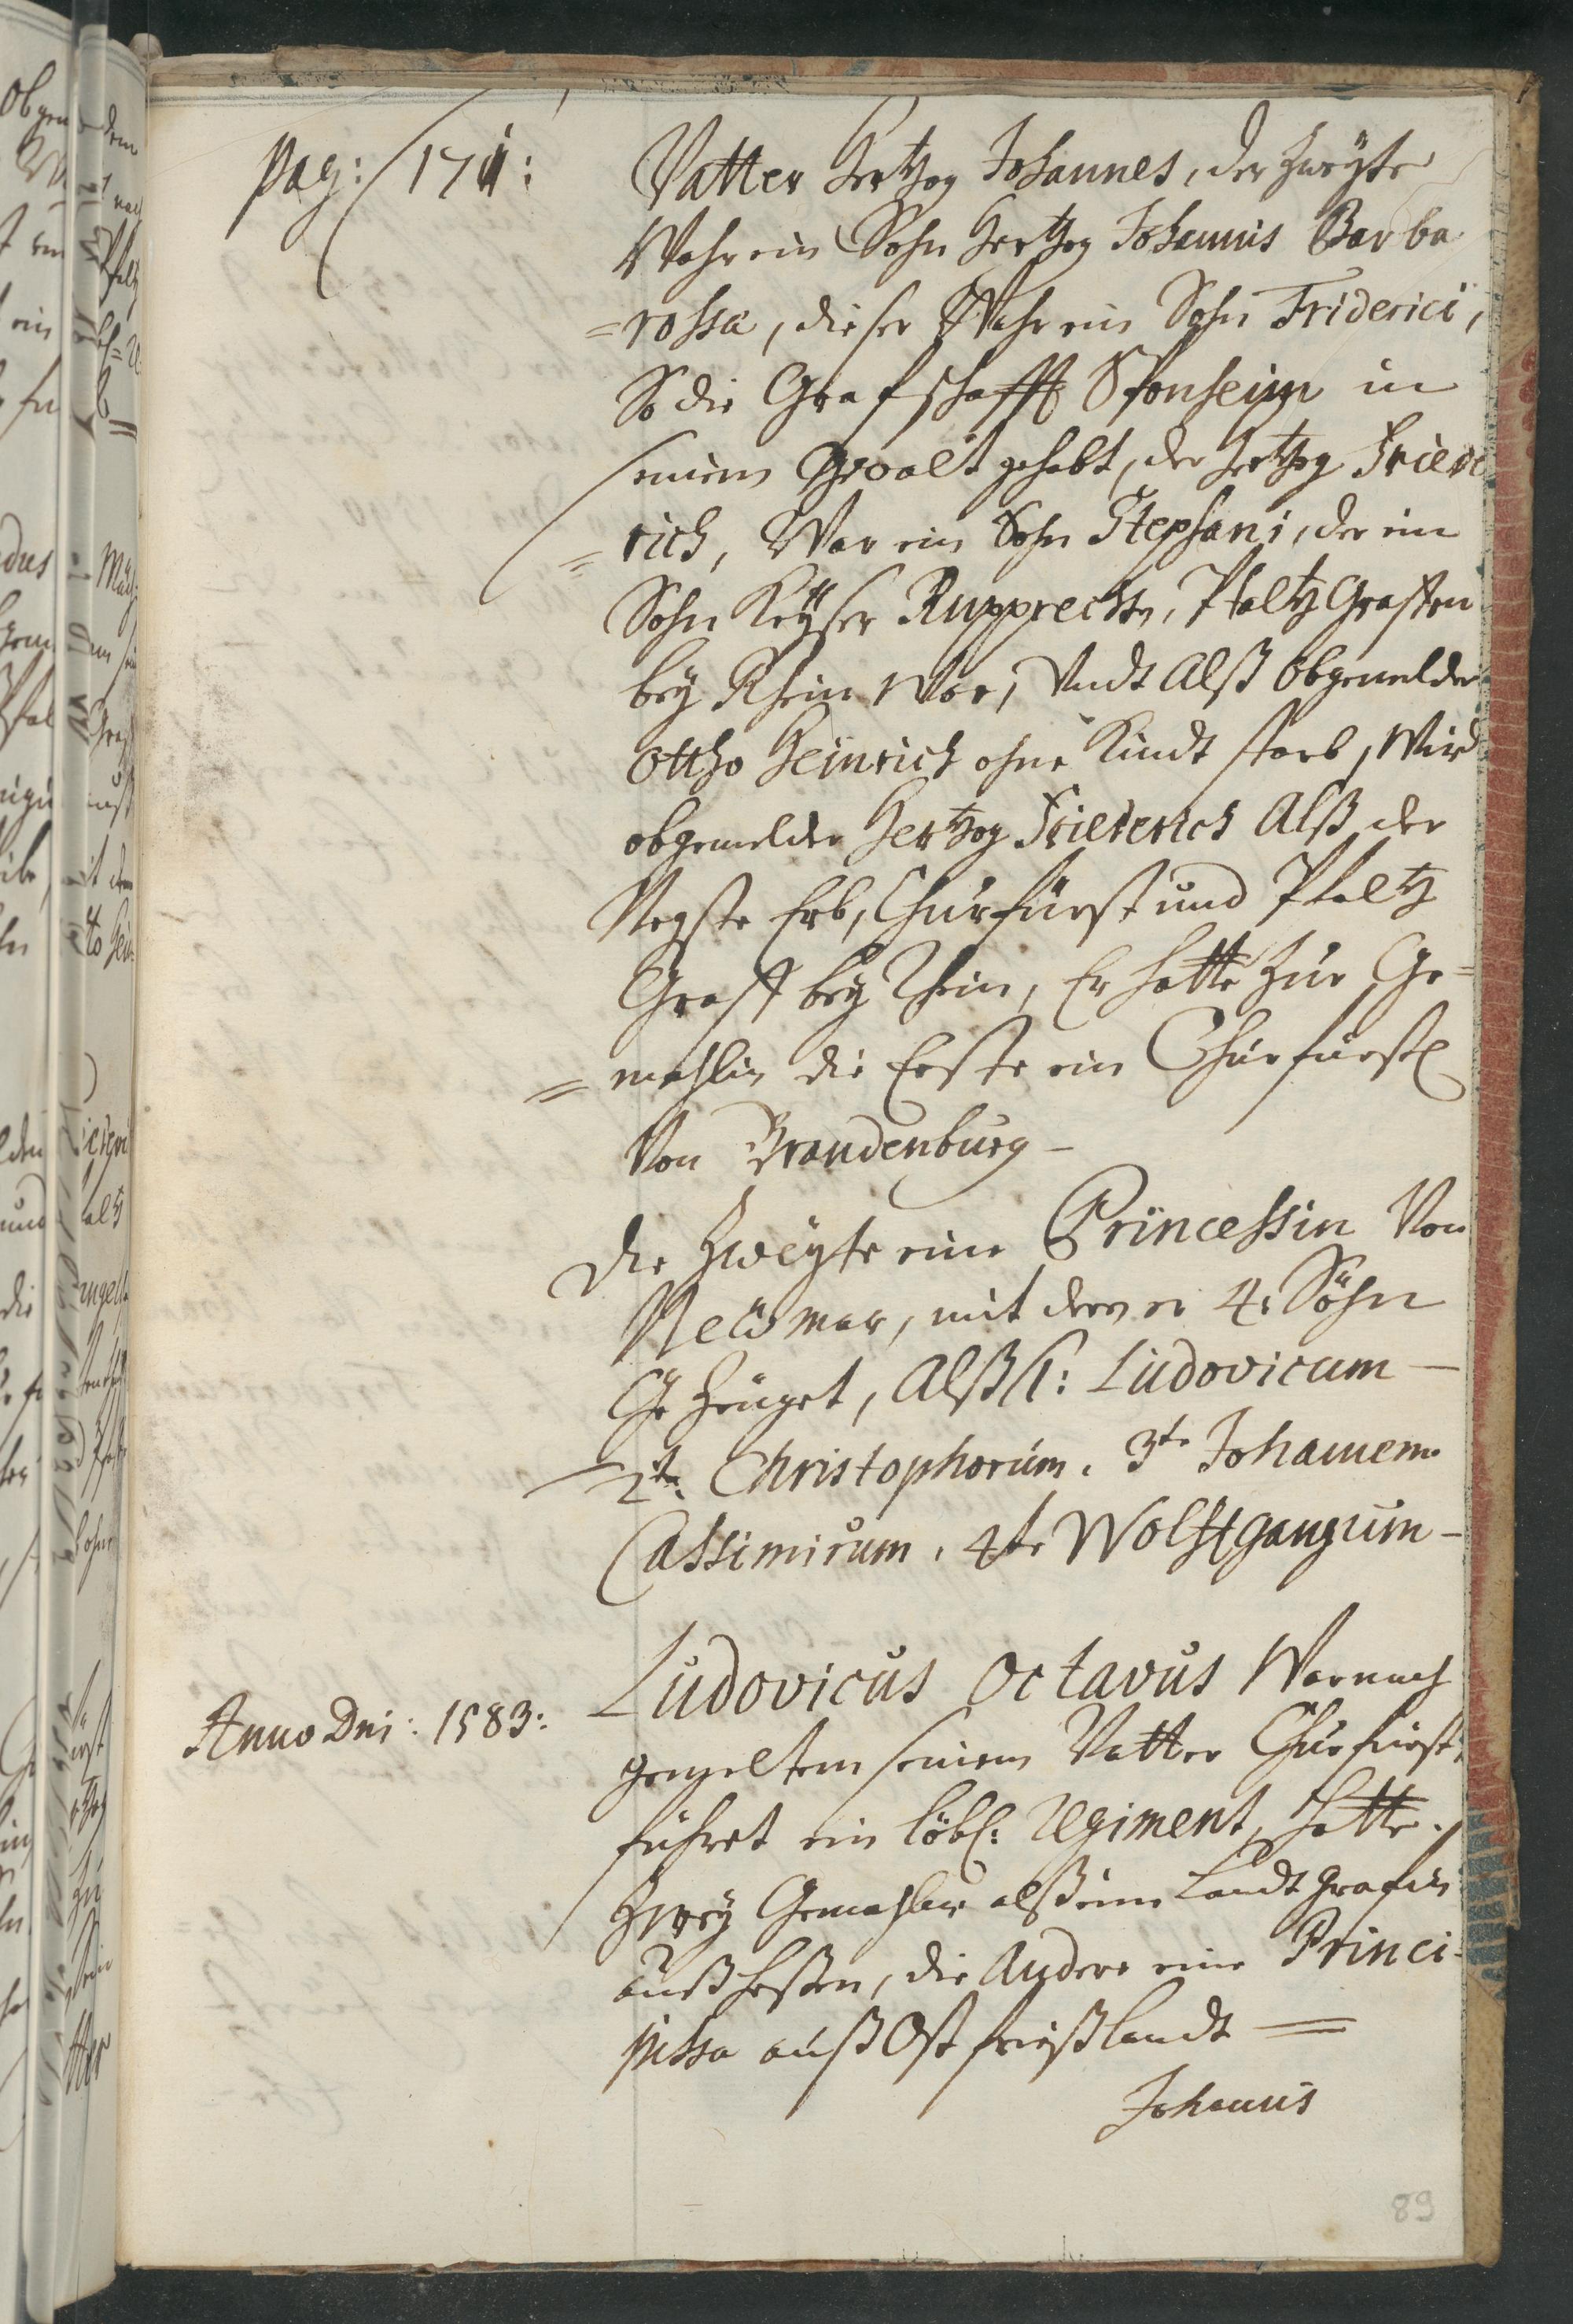 pag: 171:
Vatter Hertzog Johannes, der Zweyte
Wahr ein Sohn Hertzog Johannis Barba
=rossa, dieser Wahr ein Sohn Friderici,
So die Grafschafft Sponheim in
seinem Gewalt gehabt, der Hertzog Friede
=rich, War ein Sohn Stephani, der ein
Sohn Keÿser Rupprechts, Pfaltz Graffen
beÿ Rhein War, Undt Alß obgemelder
Ottho Heinrich ohne Kindt starb, Wird
obgemelder Hertzog Friederich Alß der
Negste Erb, Churfürst und Pfaltz
Graff beÿ Rhein, Er hatte zur Ge=
=mahlin die Erste ein Churfürstl
Von Brandenburg -
Die Zweÿte eine Princessin Von
mit deren er 4. Söhn
Gezeuget, Alß 1: Ludovicum -
2te Christophorum, 3te Johannem
Cassimirum, 4te Wolffgangum -
Anno Dni: 1583:
Ludovicus Octavus War nach
seinem Vatter Churfürst,
führet ein löbl: Regiment, hatte
Zweÿ Gemahlin alß eine Landtgrafin
auß Heßen, die Andere eine Princi-
pissa auß Ostfrießlandt =
Johannis
89